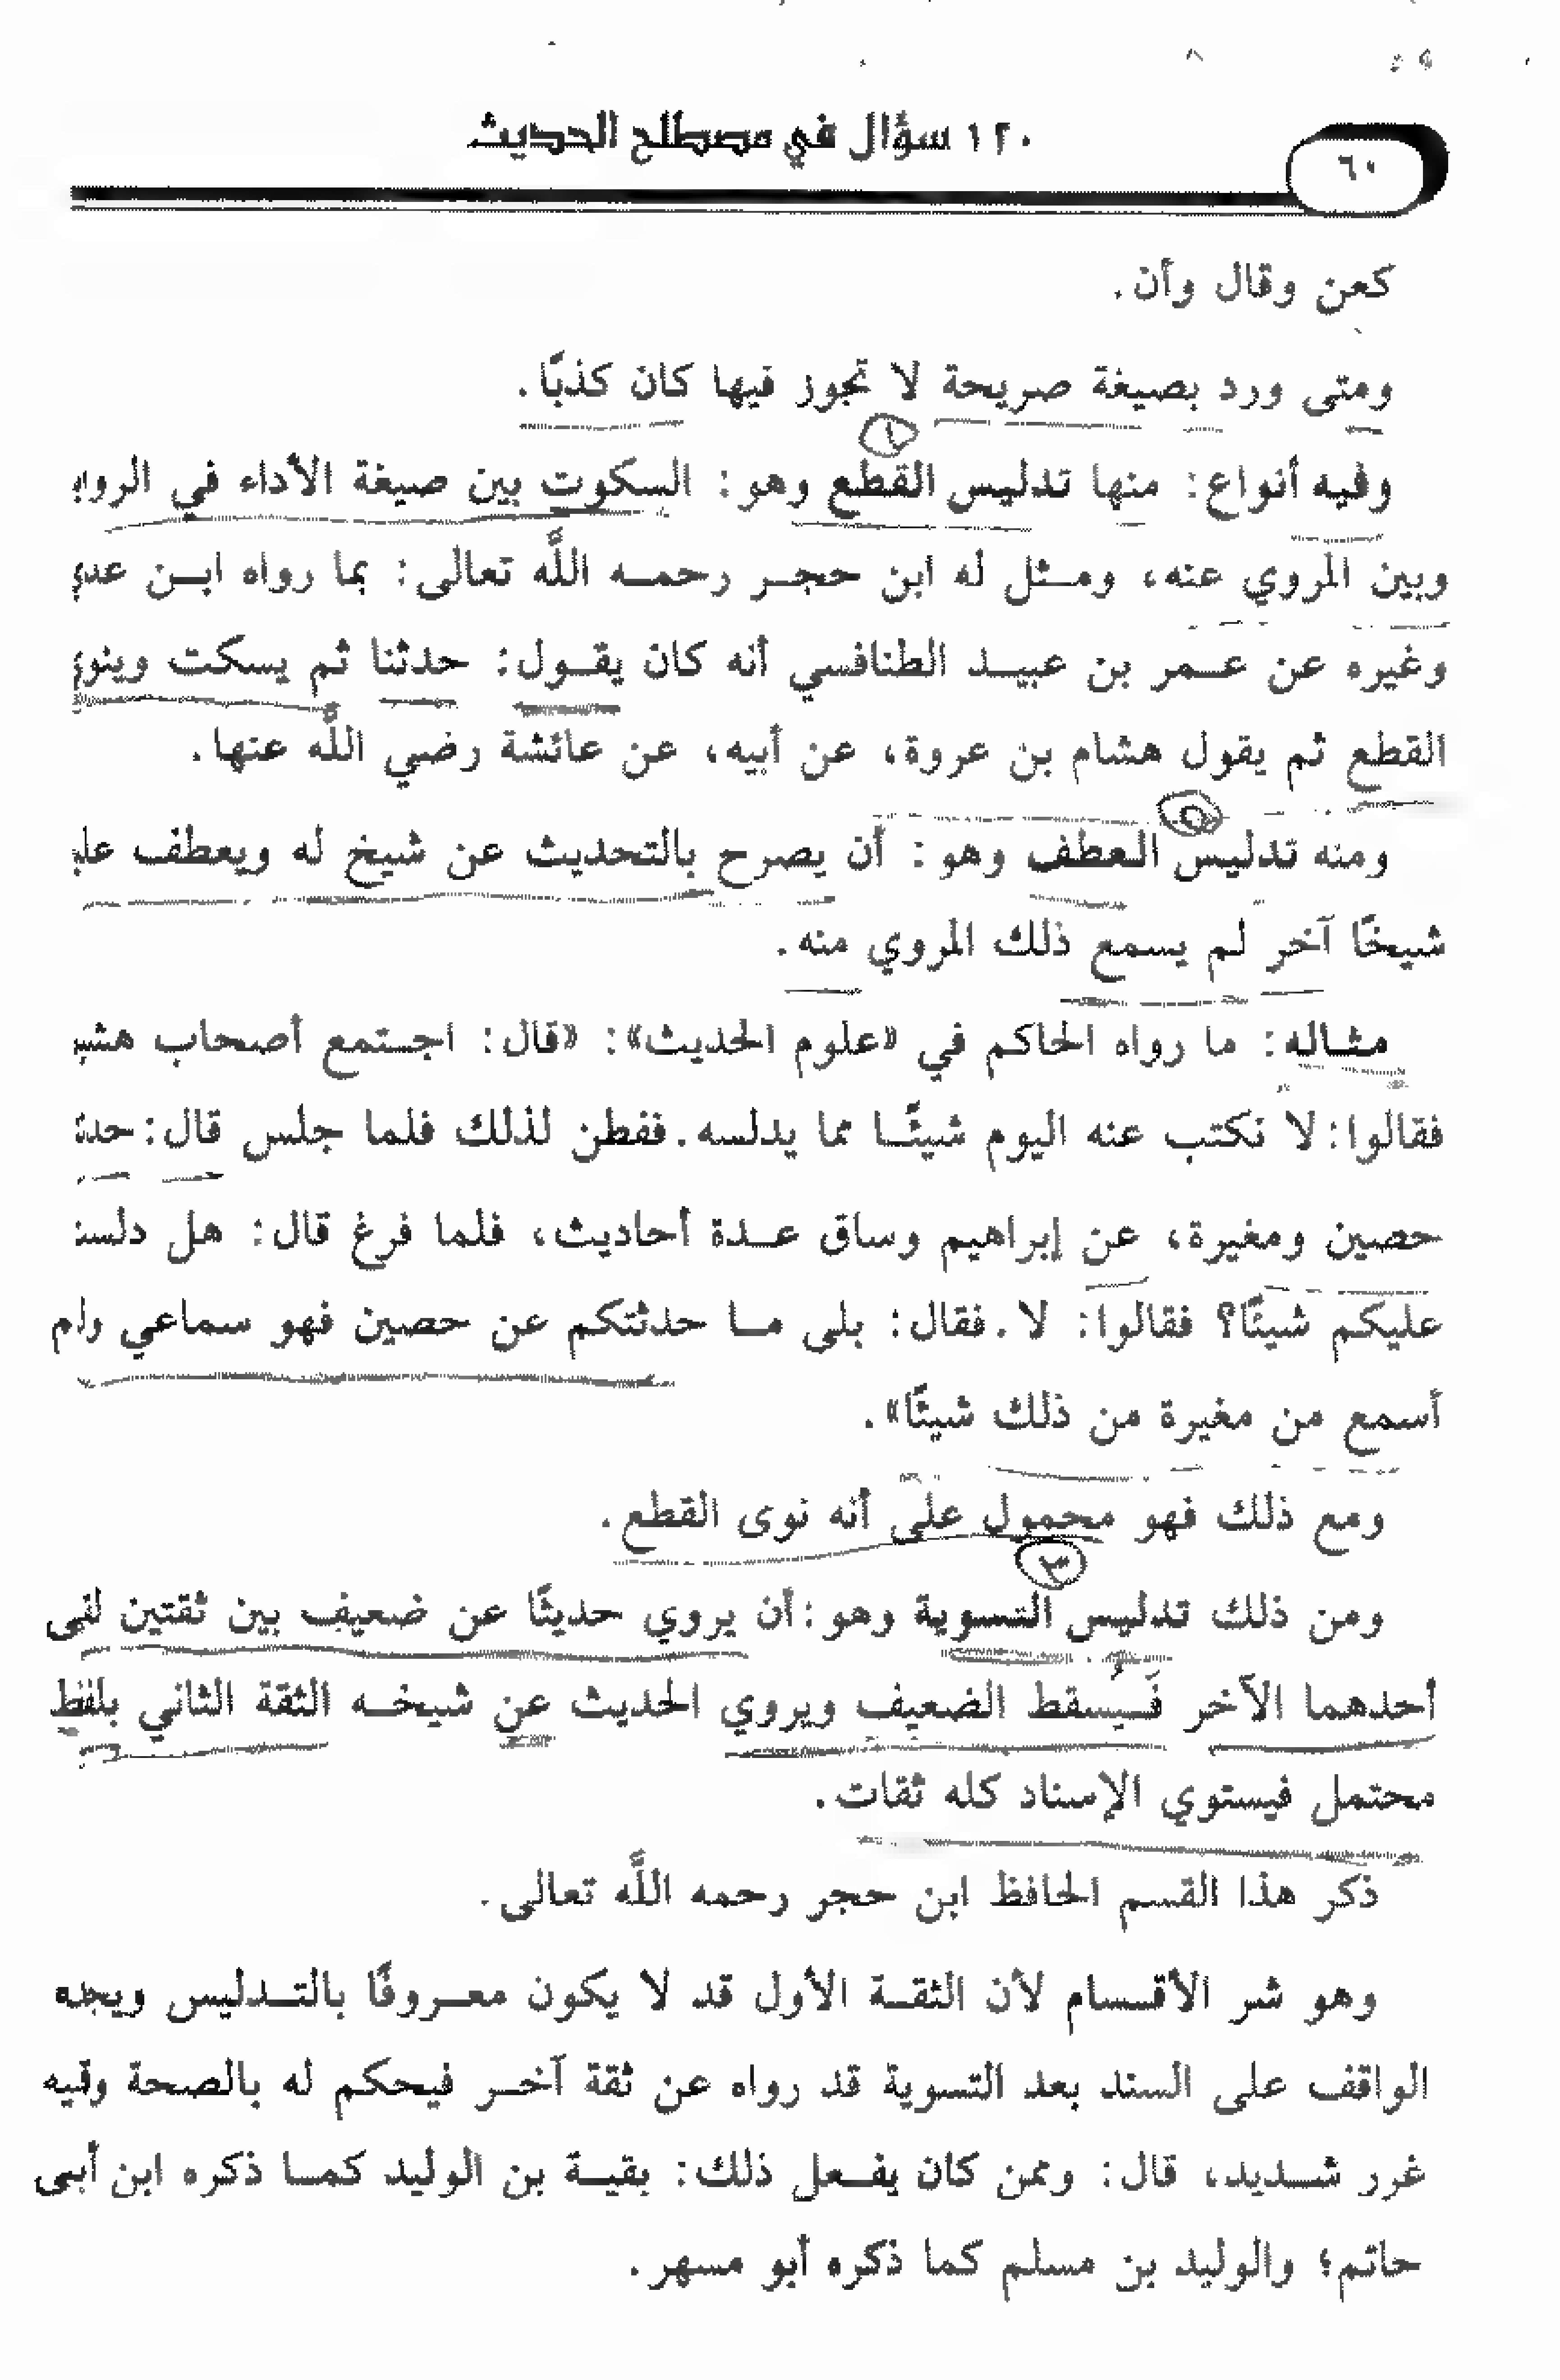 ١٢٠ سؤال في مصطلح الحديث
٦٠
كعن وقال وأن.
ومتى ورد بصيغة صريحة لا تجوز فيها كان كذبًا.
١
وفيه أنواع: منها تدليس القطع وهو: السكوت بين صيغة الأداء في
وبين المروي عنه، ومـثل له ابن حجـر رحمـه اللَّه تعالى: بما رواه ابـن
وغيره عن عـمر بن عبيـد الطنافسي أنه كان يقـول: حدثنا ثم يسكت
القطع ثم يقول هشام بن عروة، عن أبيه، عن عائشة رضي اللَّه عنها.
ومنه تدليس العطف وهو: أن يصرح بالتحديث عن شيخ له ويعطف
شيخًا آخر لم يسمع ذلك المروي منه.
مثاله: ما رواه الحاكم في «علوم الحديث»: «قال: اجـتمع أصحاب
فقالوا: لا نكتب عنه اليوم شيئًـا مما يدلسه. ففطن لذلك فلما جلس قال:
حصين ومغيرة، عن إبراهيم وساق عـدة أحاديث، فلما فرغ قال: هل
عليكم شيئًا؟ فقالوا: لا. فقال: بلى مـا حدثتكم عن حصين فهو سماعي ولم
أسمع من مغيرة من ذلك شيئًا».
ومع ذلك فهو محمول على أنه نوى القطع.
٣
ومن ذلك تدليس التسوية وهو: أن يروي حديثًا عن ضعيف بين ثقتين لقى
أحدهما الآخر فَـيُسقط الضعيف ويروي الحديث عن شيخـه الثقة الثاني بلفظ
محتمل فيستوي الإسناد كله ثقات.
ذكر هذا القسم الحافظ ابن حجر رحمه اللَّه تعالى.
وهو شر الأقسـام لأن الثقـة الأول قد لا يكون معـروفًا بالتـدليس ويجده
الواقف على السند بعد التسوية قد رواه عن ثقة آخـر فيحكم له بالصحة وفيه
غرر شـديد، قال: وممن كان يفـعل ذلك: بقيـة بن الوليد كمـا ذكره ابن أبى
حاتم؛ والوليد بن مسلم كما ذكره أبو مسهر.